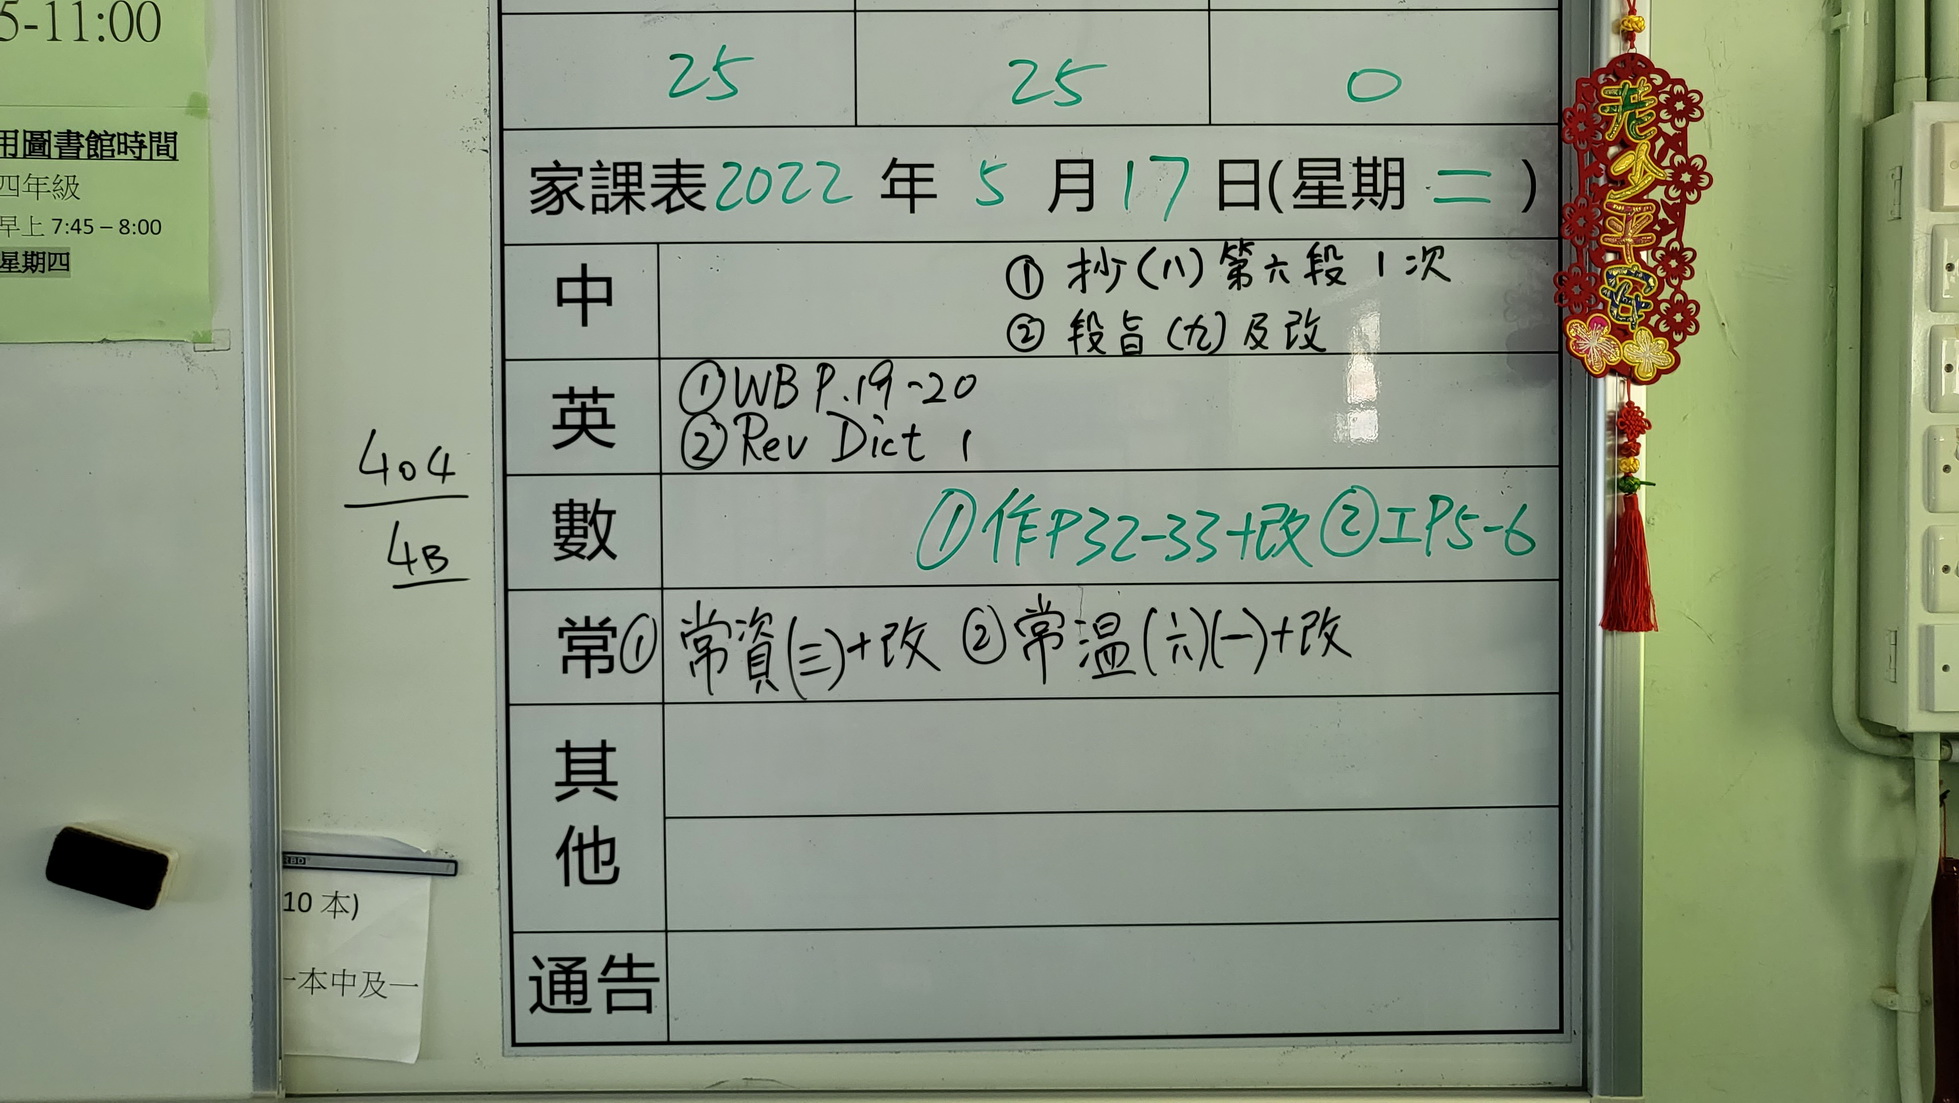 5-11:00
用圖書館時間
四年級
早上 7:45 – 8:00
星期四
25 25 0
家課表 2022 年 5 月 17 日(星期 二 )
中
① 抄(八)第六段 1 次
② 段旨(九)及改
英
①WB P.19-20
②Rev Dict 1
數
①作P32-33+改 ②工P5-6
常
①常資(三)+改 ②常溫(六)(一)+改
其他
通告
404
4B
10 本)
一本中及一
老少平安